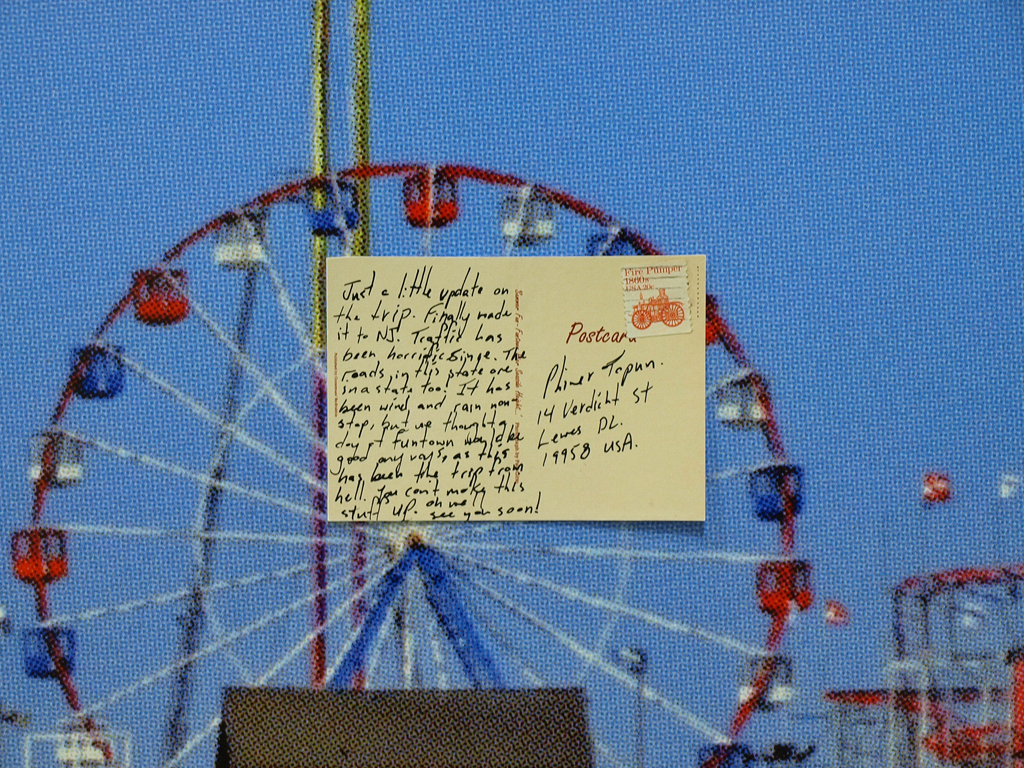 Just a little update on
the trip. Finally made
it to NJ. Traffic has
been horrific Binge. The
roads in this state are
in a state too! It has
been wind and rain non-
stop, but we thought a
day at funtown would be
good any ways, as this
has been the trip from
hell. You can't make this
stuff up. oh me!
see you soon!
Fire Pumper
1860s
USA 20c
Postcard
Phiner Topun.
14 Verdicht St
Lewes DL.
19958 USA.